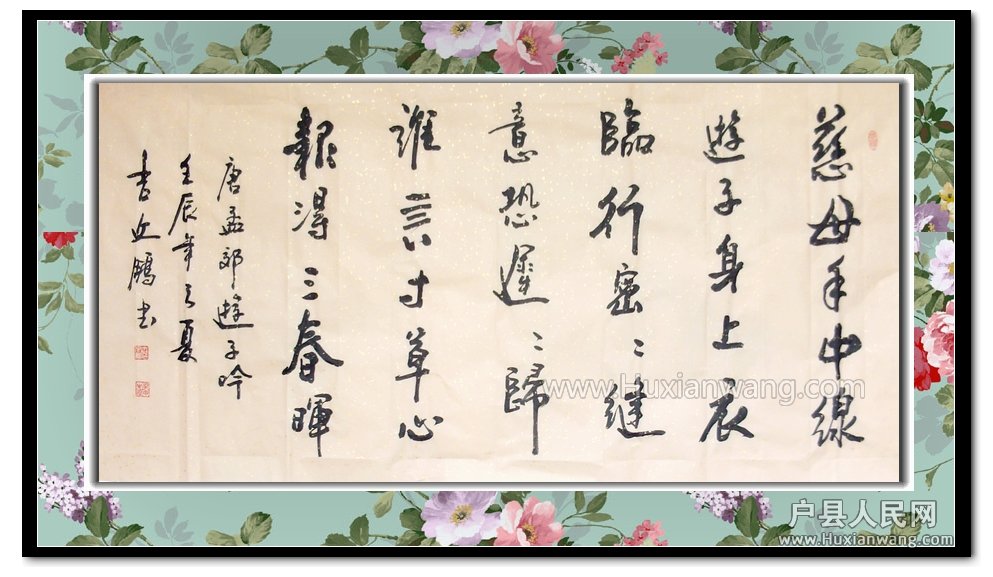 慈母手中線
遊子身上衣
臨行密〻縫
意恐遲〻歸
誰言寸草心
報得三春暉
唐孟郊遊子吟
壬辰年之夏
鵬书
www.Huxianwang.com
户县人民网
www.Huxianwang.com